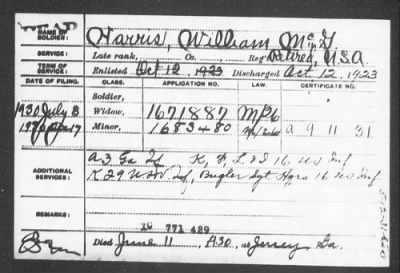 NAME OF SOLDIER: Harris, William McG
SERVICE: Late rank, Co. , Reg't Retired, U.S.A.
TERM OF SERVICE: Enlisted Oct 12, 1923 Discharged Oct. 12, 1923
DATE OF FILING. CLASS. APPLICATION NO. LAW. CERTIFICATE NO.
Soldier,
1930 July 3 Widow, 1671887
Minor, 1683480 a 9 11 31
ADDITIONAL SERVICES: A 3 Ga Inf K, F, L & I 16 US Inf
K 29 USV Inf, Bugler Sgt Hqrs 16 US Inf
REMARKS:
XC 771 429
Died June 11, 1930, at Jersey Ga.